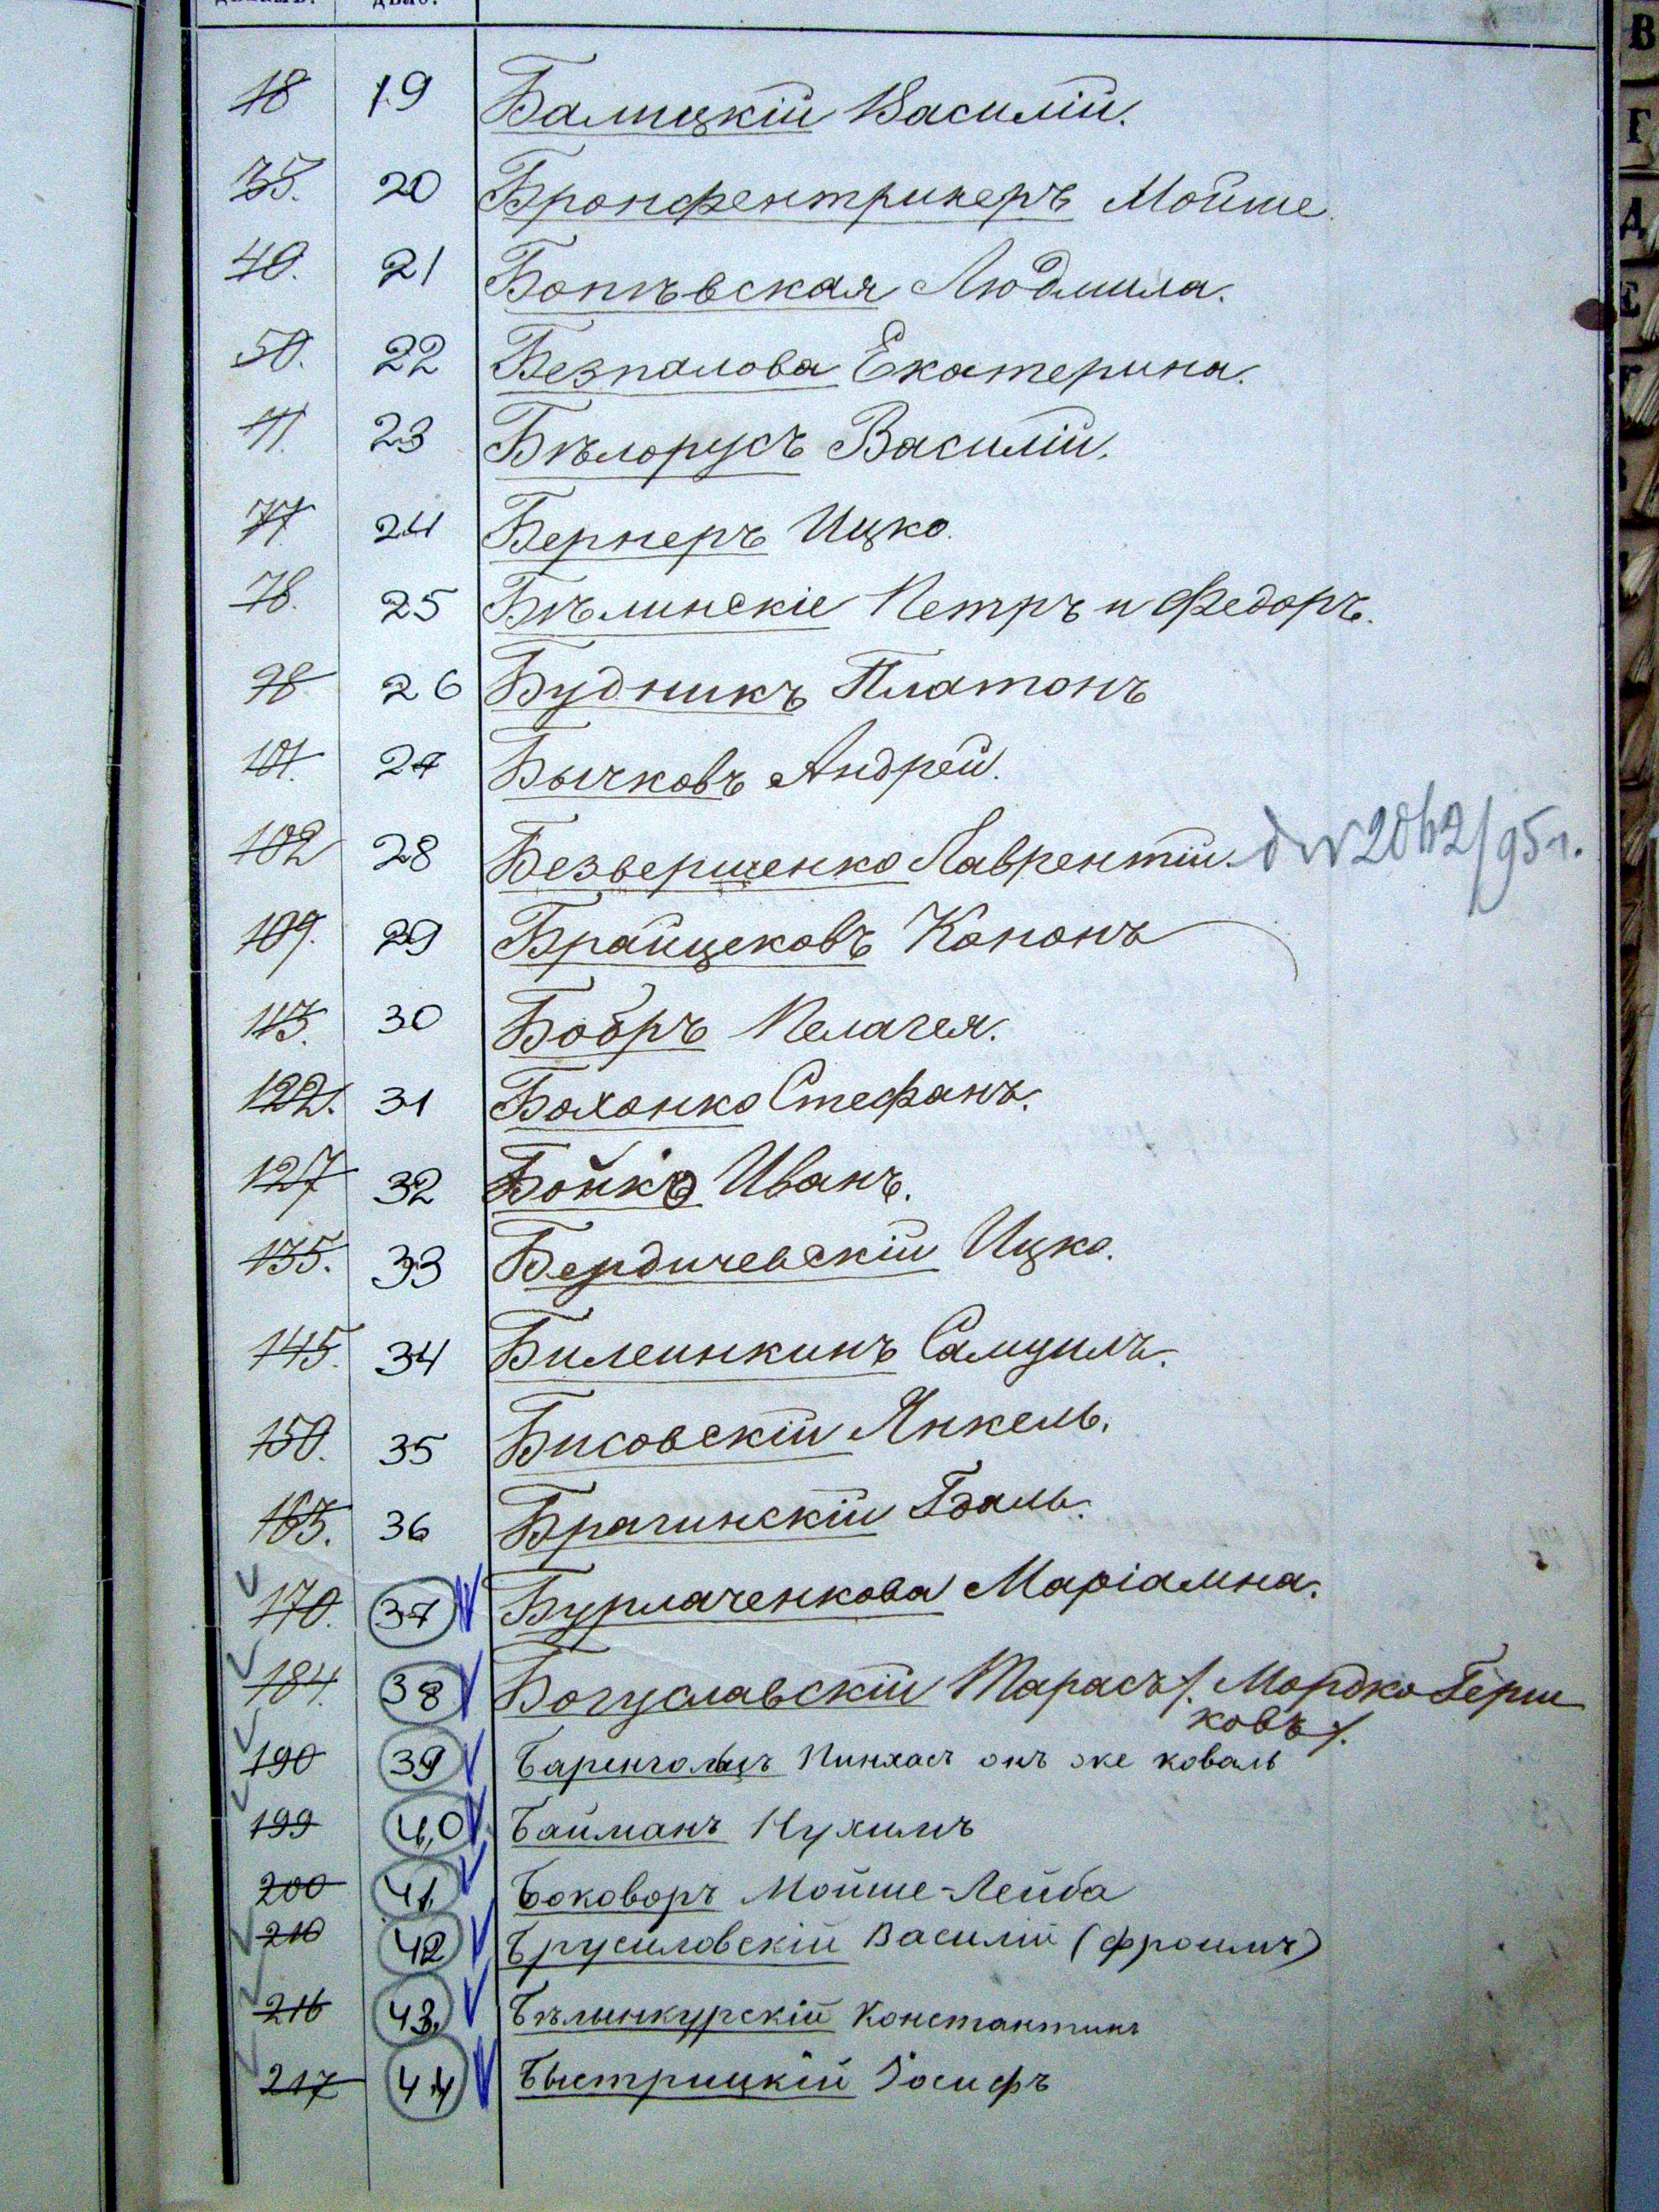 18 19 Балицкій Василій.
35. 20 Бронфентринеръ Мойше.
40. 21 Бопѣвская Людмила.
50. 22 Безпалова Екатерина.
71. 23 Бѣлорусъ Василій.
77 24 Бернеръ Ицко.
78. 25 Бѣлинскіе Петръ и Федоръ.
98 26 Будникъ Платонъ
101. 27 Бычковъ Андрей.
102 28 Безвершенко Лаврентій. д № 2062/95 г.
109. 29 Брайцековъ Кононъ
113. 30 Бобръ Пелагея.
122. 31 Боханко Стефанъ.
127 32 Бойко Иванъ.
135. 33 Бердичевскій Ицко.
145. 34 Билеинкинъ Самуилъ.
150. 35 Бисовскій Янкель.
165. 36 Брагинскій Гдаль.
170. 37 Бурлаченкова Маріамна.
184. 38 Богуславскій Тарасъ /. Мордко Герш
ковъ /.
190 39 Баренгольцъ Пинхасъ онъ же коваль
199 40 Байманъ Нухимъ
200 41. Боковоръ Мойше-Лейба
210 42 Брусиловскій Василій (Фроимъ)
216 43. Бѣлынкурскій Константинъ
217 44 Быстрицкій Іосифъ